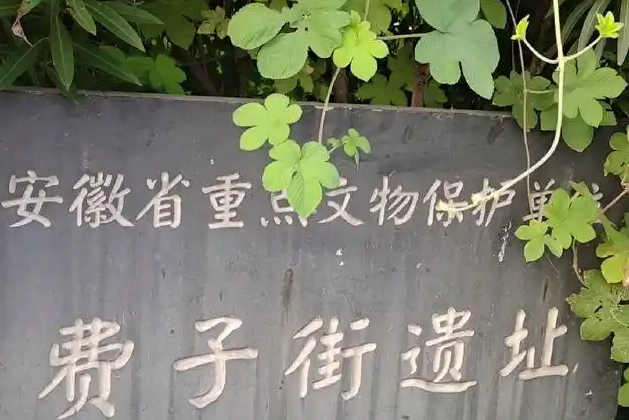 安徽省重点文物保护单
费子街遗址